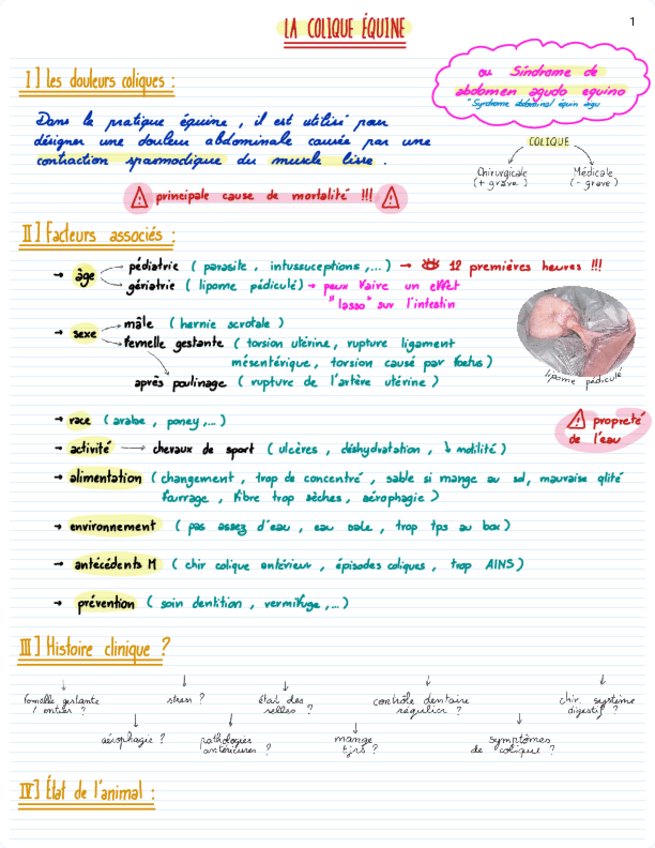 1
LA COLIQUE ÉQUINE
I] les douleurs coliques :
ou Síndrome de
abdomen agudo equino
"Syndrome abdominal équin aigu
Dans la pratique équine, il est utilisé pour
désigner une douleur abdominale causée par une
contraction spasmodique du muscle lisse.
COLIQUE
Chirurgicale
(+ grave)
Médicale
(- grave)
principale cause de mortalité !!!
II] Facteurs associés :
→ âge
pédiatrie (parasite, intussuceptions,...) → 12 premières heures !!!
gériatrie (lipome pédiculé) → peux faire un effet
"lasso" sur l'intestin
→ sexe
mâle (hernie scrotale)
femelle gestante (torsion utérine, rupture ligament
mésentérique, torsion causé par foetus)
après poulinage (rupture de l'artère utérine)
lipome pédiculé
→ race (arabe, poney,...)
propreté
de l'eau
→ activité → chevaux de sport (ulcères, déshydratation, ↓ motilité)
→ alimentation (changement, trop de concentré, sable si mange au sol, mauvaise qlité
fourrage, fibre trop sèches, aérophagie)
→ environnement (pas assez d'eau, eau sale, trop tps au box)
→ antécédents M (chir colique antérieur, épisodes coliques, trop AINS)
→ prévention (soin dentition, vermifuge,...)
III] Histoire clinique ?
femelle gestante
/ entier ?
stress ?
état des
selles ?
contrôle dentaire
régulier ?
chir. système
digestif ?
aérophagie ?
pathologies
antérieures ?
mange
tjrs ?
symptômes
de colique ?
IV] État de l'animal :